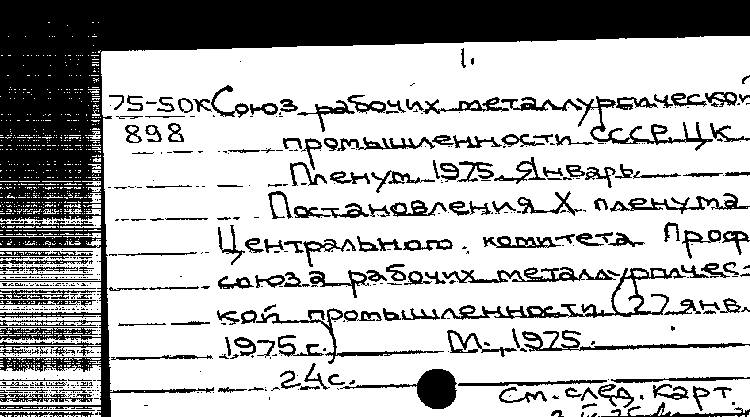 1.
75-50К Союз рабочих металлургической
898 промышленности СССР. ЦК
Пленум. 1975. Январь.
Постановления X пленума
Центрального комитета Проф
союза рабочих металлургичес-
кой промышленности. (27 янв.
1975 г.) М., 1975.
24с.
См. след. карт.